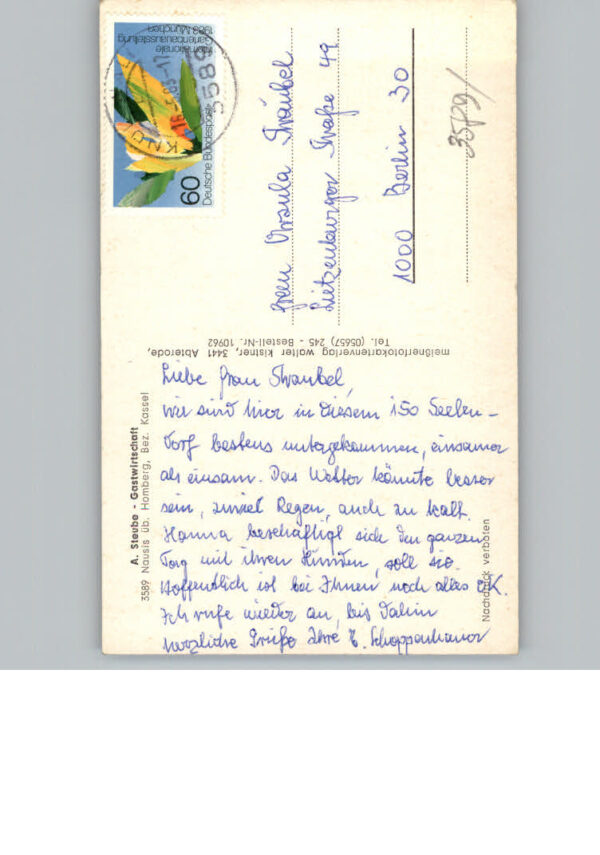 Internationale
Gartenbauausstellung
1983 München
60
Deutsche Bundespost
3589
KNÜL
16.-5.83-17
Frau Ursula Straubel
Lietzenburger Straße 49
1000 Berlin 30
3579/
meißnerfotokartenverlag walter kistner, 3441 Abterode,
Tel. (05657) 245 - Bestell-Nr. 10962
A. Steube - Gastwirtschaft
3589 Nausis üb. Homberg, Bez. Kassel
Liebe Frau Straubel,
wir sind hier in diesem 150 Seelen-
dorf bestens untergekommen, einsamer
als einsam. Das Wetter könnte besser
sein, zuviel Regen, auch zu kalt.
Hanna beschäftigt sich den ganzen
Tag mit ihren Hunden, soll sie.
Hoffentlich ist bei Ihnen noch alles OK.
Ich rufe wieder an, bis dahin
herzliche Grüße Ihre E. Schoppenhauer
Nachdruck verboten